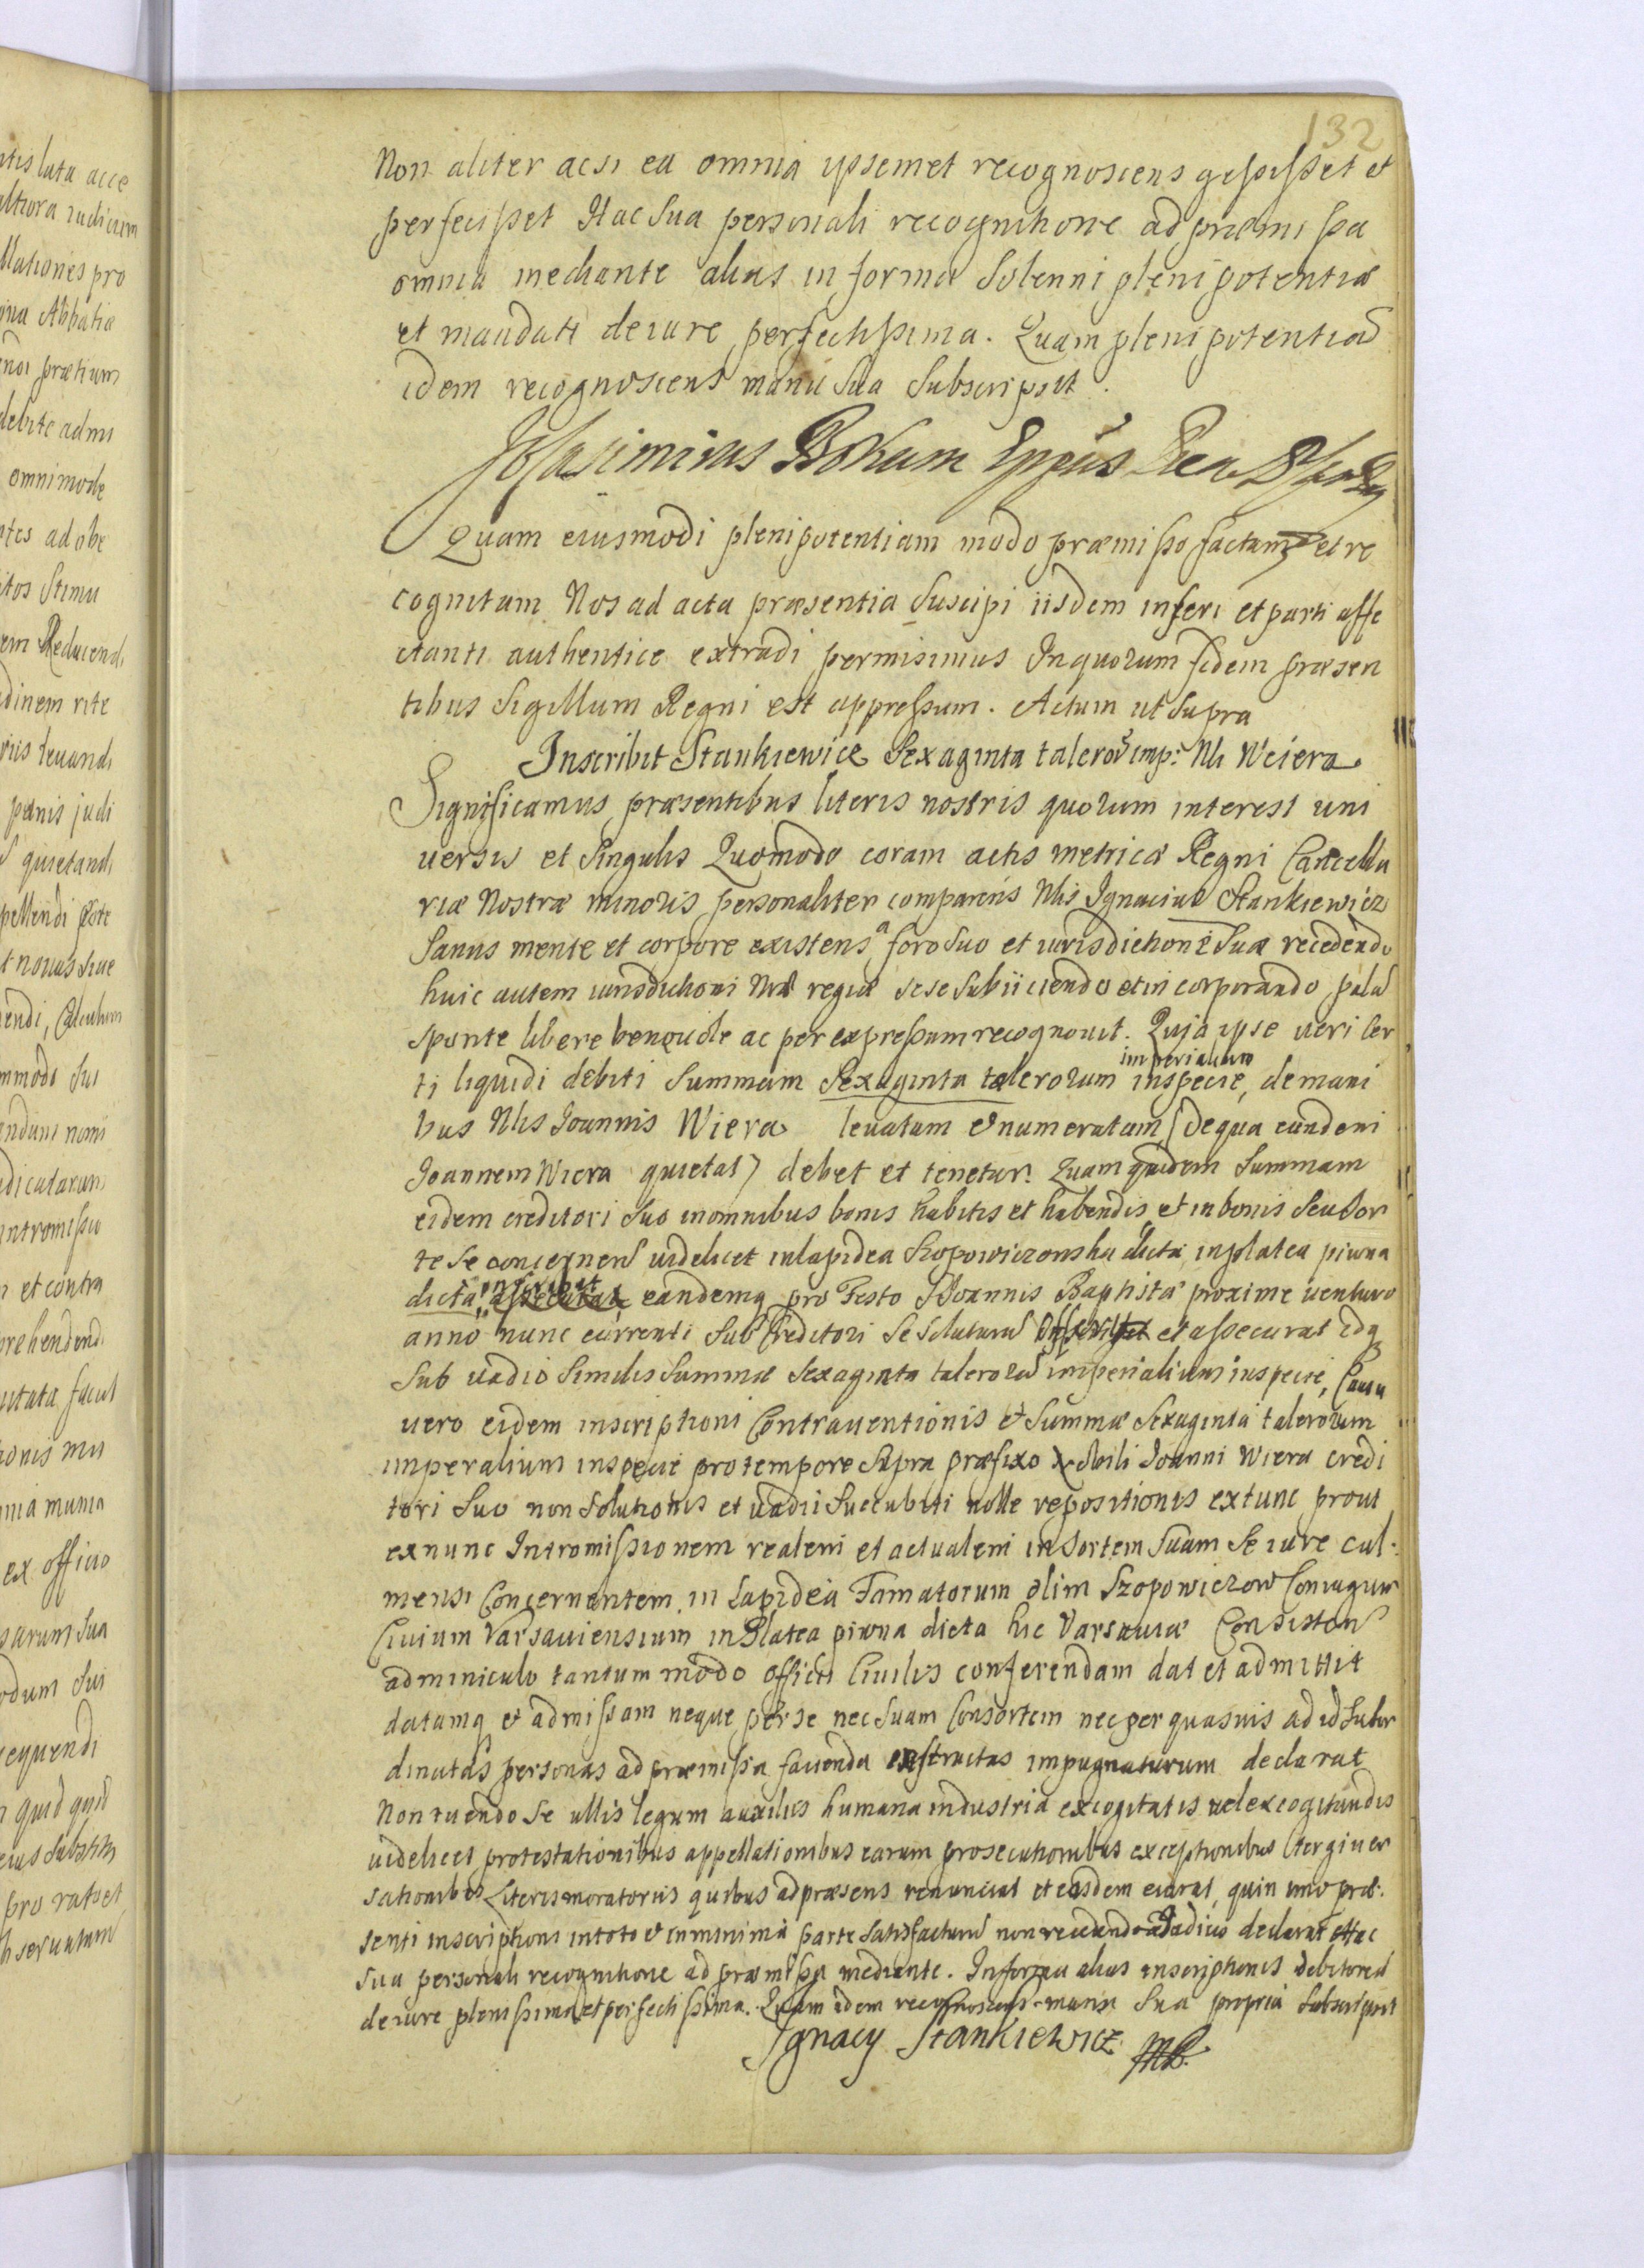 132
Non aliter acsi ea omnia ipsemet recognoscens gessisset et
perfecisset Hac sua personali recognitione ad præmissa
omnia mediante alias in forma solenni plenipotentiæ
et mandati de iure perfectissima. Quam plenipotentiã
idem recognoscens manu sua subscripsit.
Casimirus
Quam eiusmodi plenipotentiam modo præmisso factam et re
cognitam Nos ad acta præsentia suscipi iisdem inseri et parti affe
ctanti authentice extradi permisimus In quorum fidem præsen
tibus Sigillum Regni est appressum. Actum ut supra
Inscribit Stankiewicz Sexaginta talerõ imp: Nli Weiera
Significamus præsentibus literis nostris quorum interest uni
uersis et singulis Quomodo coram actis metricæ Regni Cancella
riæ Nostræ minoris personaliter comparens Nlis Ignacius Stankiewicz
Sanus mente et corpore existens a foro suo et iurisdictione sua recedendo
huic autem iurisdictioni Nræ regiæ sese subiiciendo et incorporando palã
sponte libere beneuole ac per expressum recognouit. Quja ipse ueri cer
ti liquidi debiti summam Sexaginta talerorum imperialium in specie, de mani
bus Nlis Joannis Wiera leuatam et numeratam (de qua eundem
Joannem Wiera quietat) debet et tenetur. Quam quidem summam
eidem creditori suo in omnibus bonis habitis et habendis et in bonis seu sor
te se concernen videlicet in lapidea Szopowiczonska dicta in platea piwna
dicta inscribit assecurat eandemq pro Festo S Joannis Baptistæ proxime venturo
anno nunc currenti suo Creditori se soluturũ inscribit et assecurat idq
sub uadio similis summæ sexaginta talerorũ imperialium in specie, Casu
uero eidem inscriptioni Contrauentionis et summæ sexaginta talerorum
imperalium in specie pro tempore supra præfixo Nobili Joanni Wiera credi
tori suo non solutionis et uadii succubiti nolle repositionis ex tunc prout
ex nunc Intromissionem realem et actualem in sortem suam se iure cul
mensi Concernentem in Lapidea Famatorum olim Szopowiczow Coniugum
Ciuium Varsauiensium in Platea piwna dicta hic Varsauiæ Consisten
adminiculo tantum modo officii Ciuilis conferendam dat et admittit
datamq et admissam neque per se nec suam Consortem nec per quasuis ad id subor
dinatas personas ad præmissa facienda instructas impugnaturum declarat
Non tuendo se ullis legum auxiliis humana industria excogitatis uel excogitandis
uidelicet protestationibus appellationibus earum prosecutionibus exceptionibus tergiuer
sationibus Literis moratoriis quibus ad præsens renunciat et easdem eiurat, quin imo præ
senti inscriptioni in toto et in minima parte satisfacturũ non recedendo a uadiis declarat Hac
sua personali recognitione ad præmissa mediante. In forma alias inscriptionis debitoreã
de iure plenissima et perfectissima. Quam idem recognoscens manu sua propria subscripsit
Ignacy Stankiewicz mp.